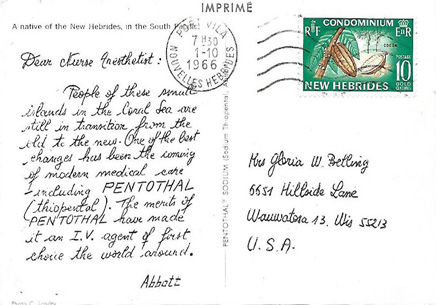 IMPRIMÉ
A native of the New Hebrides, in the South Pacific
Dear Nurse Anesthetist:
People of these small
islands in the Coral Sea are
still in transition from the
old to the new. One of the best
changes has been the coming
of modern medical care
- including PENTOTHAL
(thiopental). The merits of
PENTOTHAL have made
it an I.V. agent of first
choice the world around.
Abbott
PENTOTHAL SODIUM (Sodium Thiopental, Abbott)
PORT-VILA
7H30
1-10
1966
NOUVELLES HEBRIDES
CONDOMINIUM
RF
EIIR
COCOA
POSTAGE
10
GOLD
CENTIMES
NEW HEBRIDES
Mrs Gloria W. Betling
6651 Hillside Lane
Wauwatora 13. Wis 55213
U.S.A.